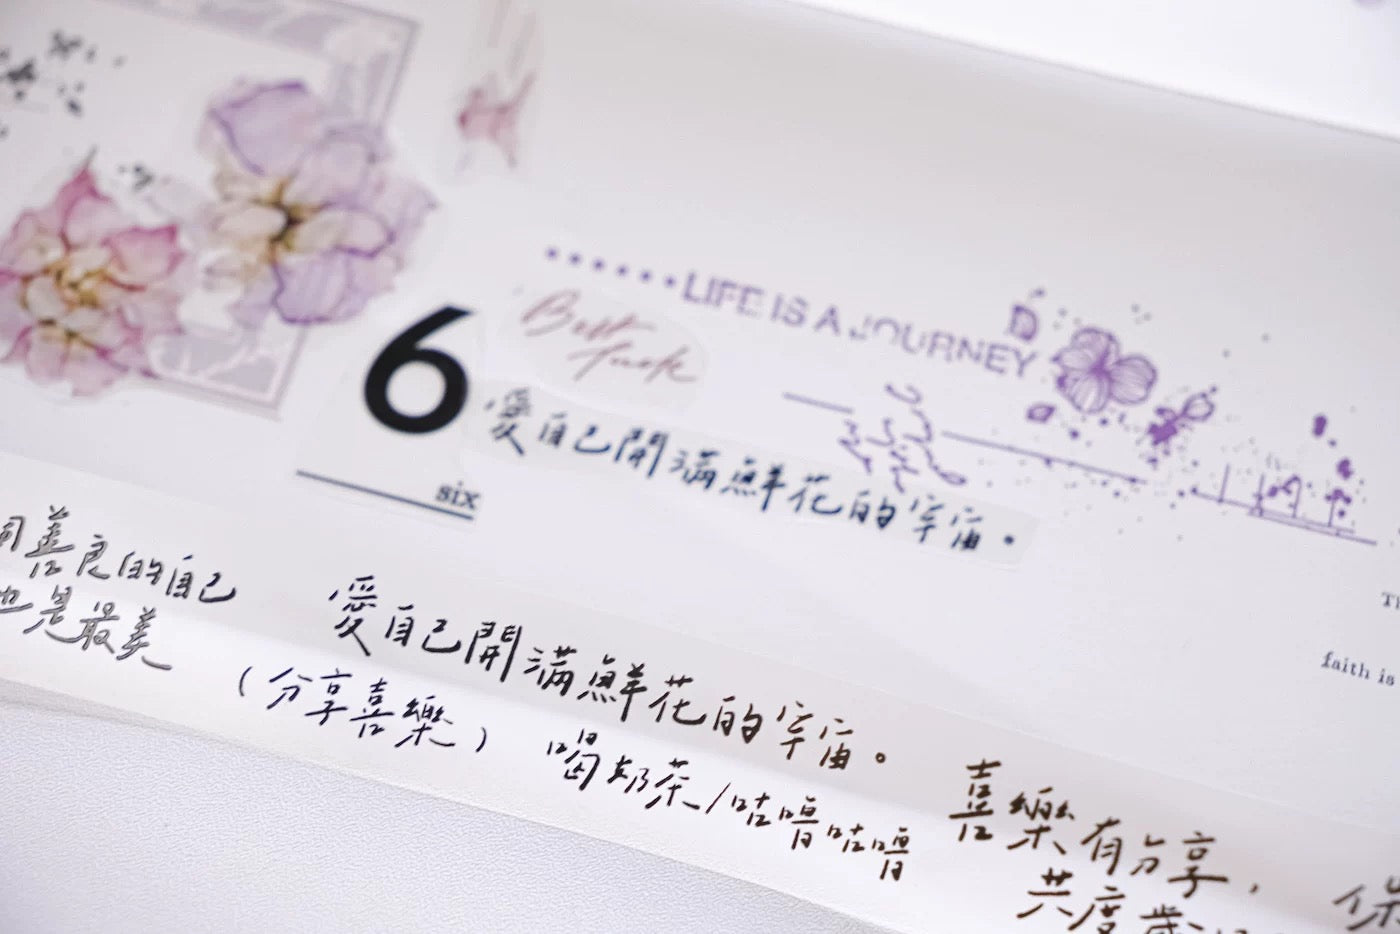 LIFE IS A JOURNEY
Best
6
愛自己開滿鮮花的宇宙。
six
善良的自己
也是最美
愛自己開滿鮮花的宇宙。
(分享喜樂)
喝奶茶/咕嚕咕嚕
喜樂有分享,
共度
faith is